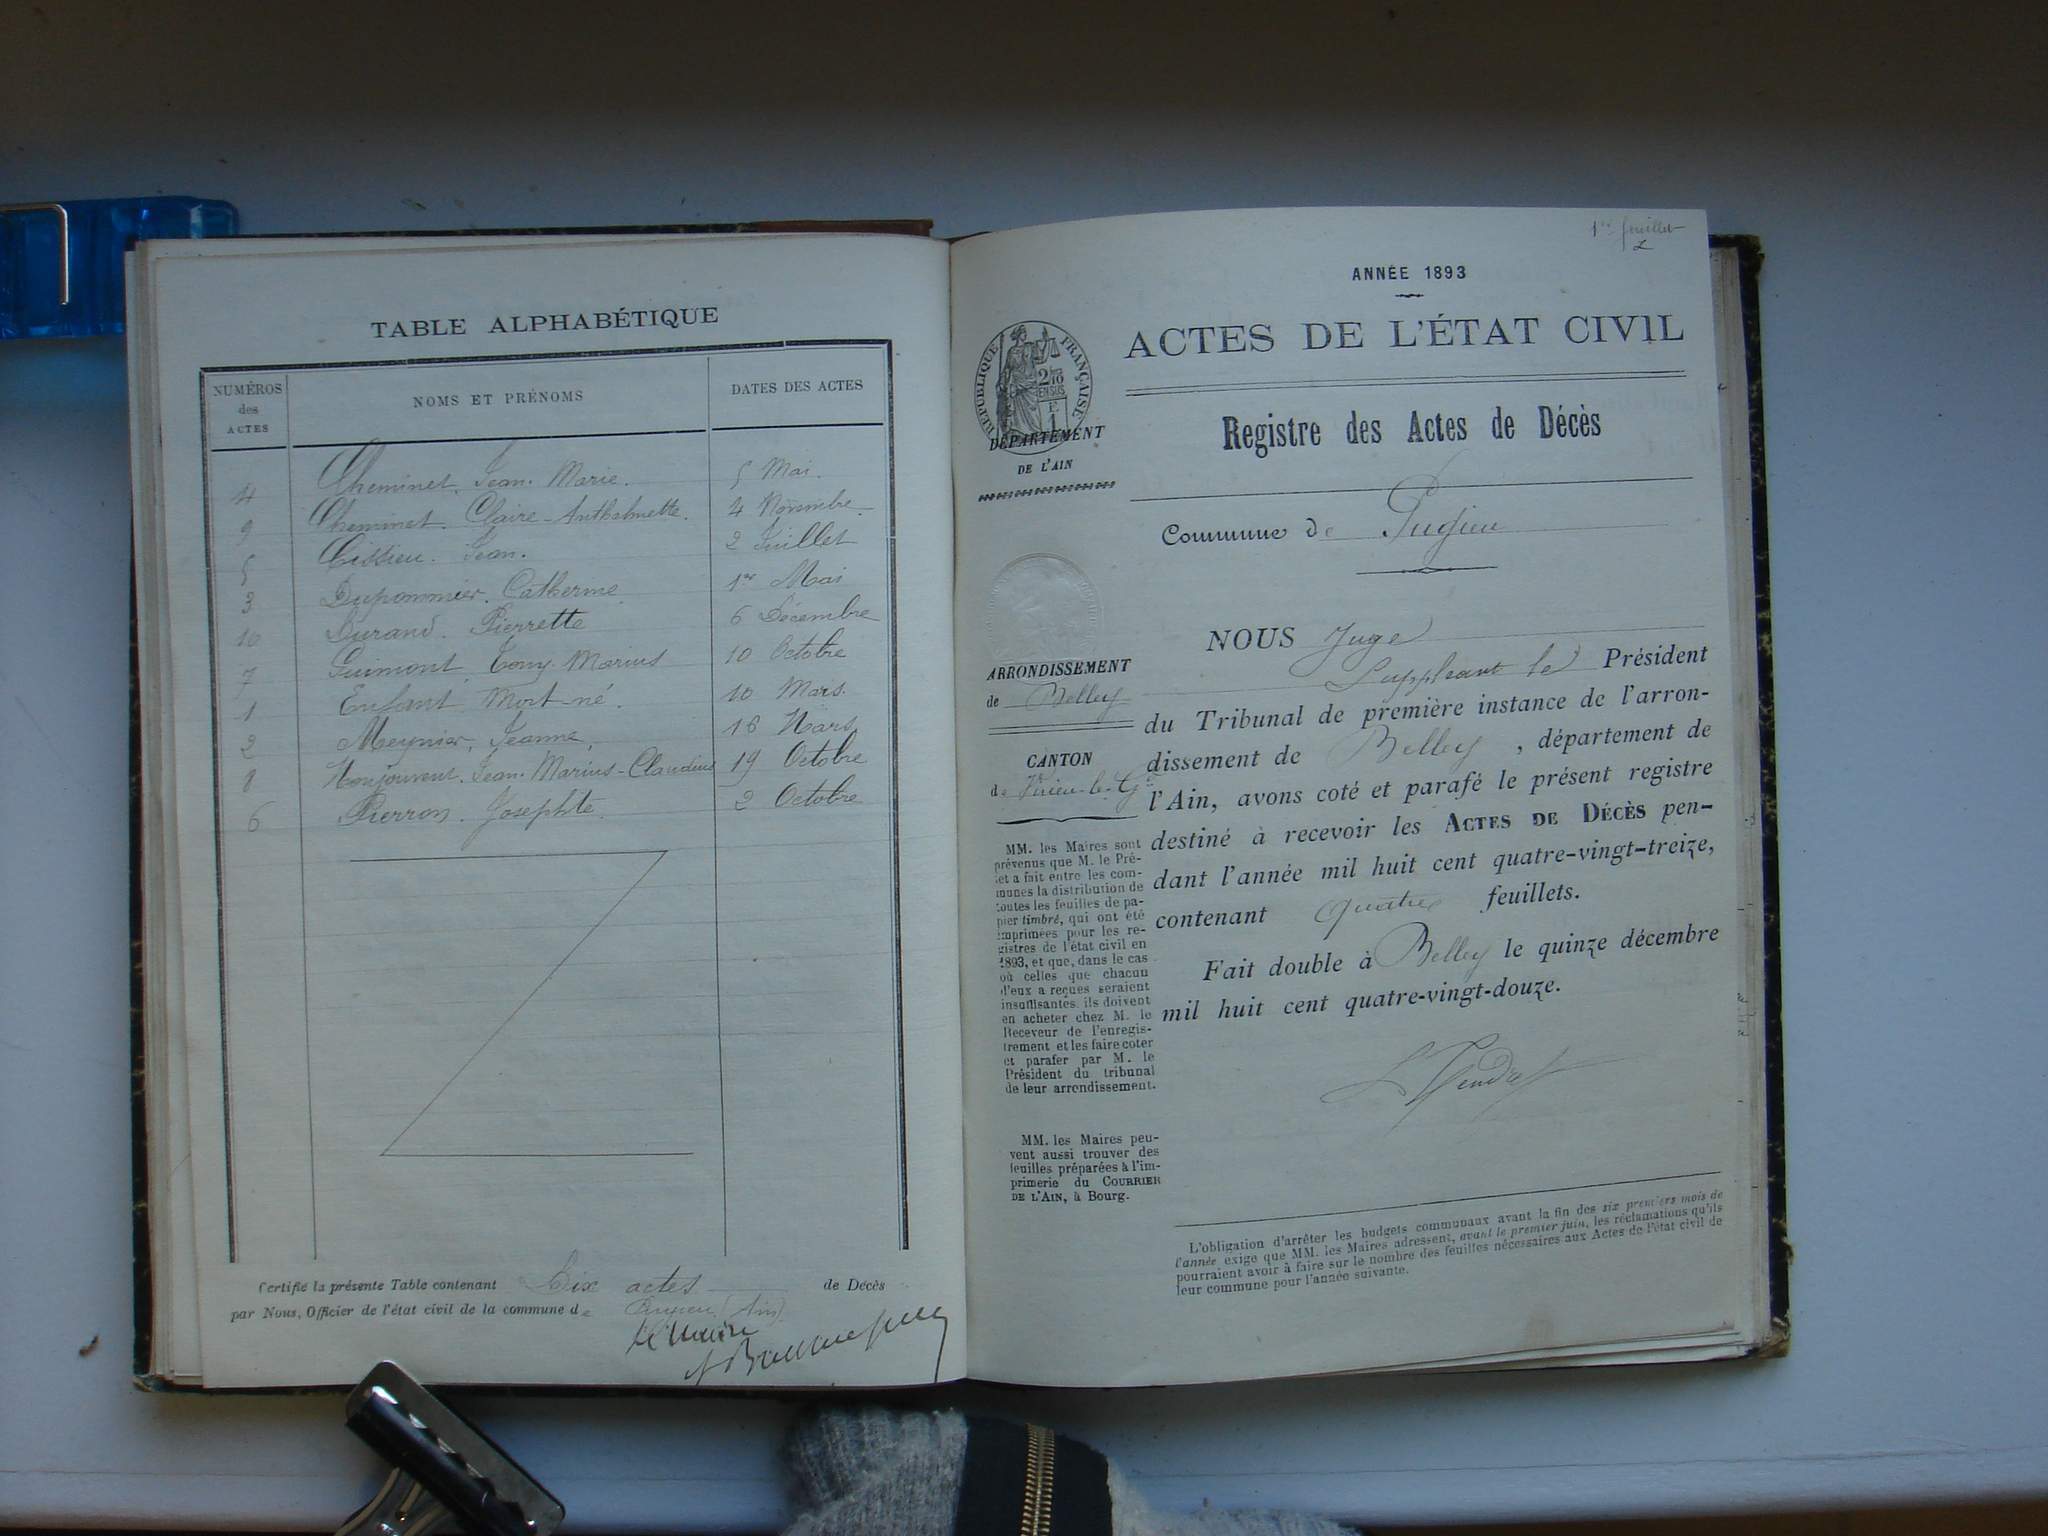 TABLE ALPHABÉTIQUE
NUMÉROS des ACTES
NOMS ET PRÉNOMS
DATES DES ACTES
4 Cheminet, Jean-Marie. 5 Mai.
9 Cheminet. Claire-Anthelmette. 4 Novembre
5 Cissieu. Jean. 2 Juillet
3 Dupommier. Catherine 1er Mai
10 Durand. Pierrette 6 Décembre
7 Guimont, Tony-Marius 10 Octobre
1 Enfant Mort-né. 10 Mars.
2 Meynier, Jeanne, 16 Mars
8 Monjouvent. Jean-Marius-Claudius 19 Octobre
6 Pierron. Josephte. 2 Octobre
Certifié la présente Table contenant Dix actes de Décès
par Nous, Officier de l'état civil de la commune de Pugieu (Ain)
Le Maire
1er feuillet
ANNÉE 1893
ACTES DE L'ÉTAT CIVIL
RÉPUBLIQUE FRANÇAISE
2/10 EN SUS
DÉPARTEMENT
DE L'AIN
Registre des Actes de Décès
Commune de Pugieu
ARRONDISSEMENT
de Belley
CANTON
de Virieu-le-Gd
MM. les Maires sont
prévenus que M. le Pré-
fet a fait entre les com-
munes la distribution de
toutes les feuilles de pa-
pier timbré, qui ont été
imprimées pour les re-
gistres de l'état civil en
1893, et que, dans le cas
où celles que chacun
d'eux a reçues seraient
insuffisantes, ils doivent
en acheter chez M. le
Receveur de l'enregis-
trement et les faire coter
et parafer par M. le
Président du tribunal
de leur arrondissement.
MM. les Maires peu-
vent aussi trouver des
feuilles préparées à l'im-
primerie du COURRIER
DE L'AIN, à Bourg.
NOUS Juge
Suppléant le Président
du Tribunal de première instance de l'arron-
dissement de Belley, département de
l'Ain, avons coté et parafé le présent registre
destiné à recevoir les ACTES DE DÉCÈS pen-
dant l'année mil huit cent quatre-vingt-treize,
contenant quatre feuillets.
Fait double à Belley le quinze décembre
mil huit cent quatre-vingt-douze.
L'obligation d'arrêter les budgets communaux avant la fin des six premiers mois de
l'année exige que MM. les Maires adressent, avant le premier juin, les réclamations qu'ils
pourraient avoir à faire sur le nombre des feuilles nécessaires aux Actes de l'état civil de
leur commune pour l'année suivante.